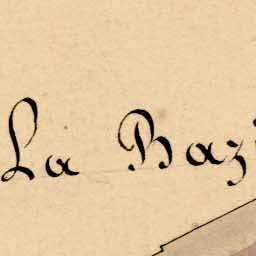 La Bazi